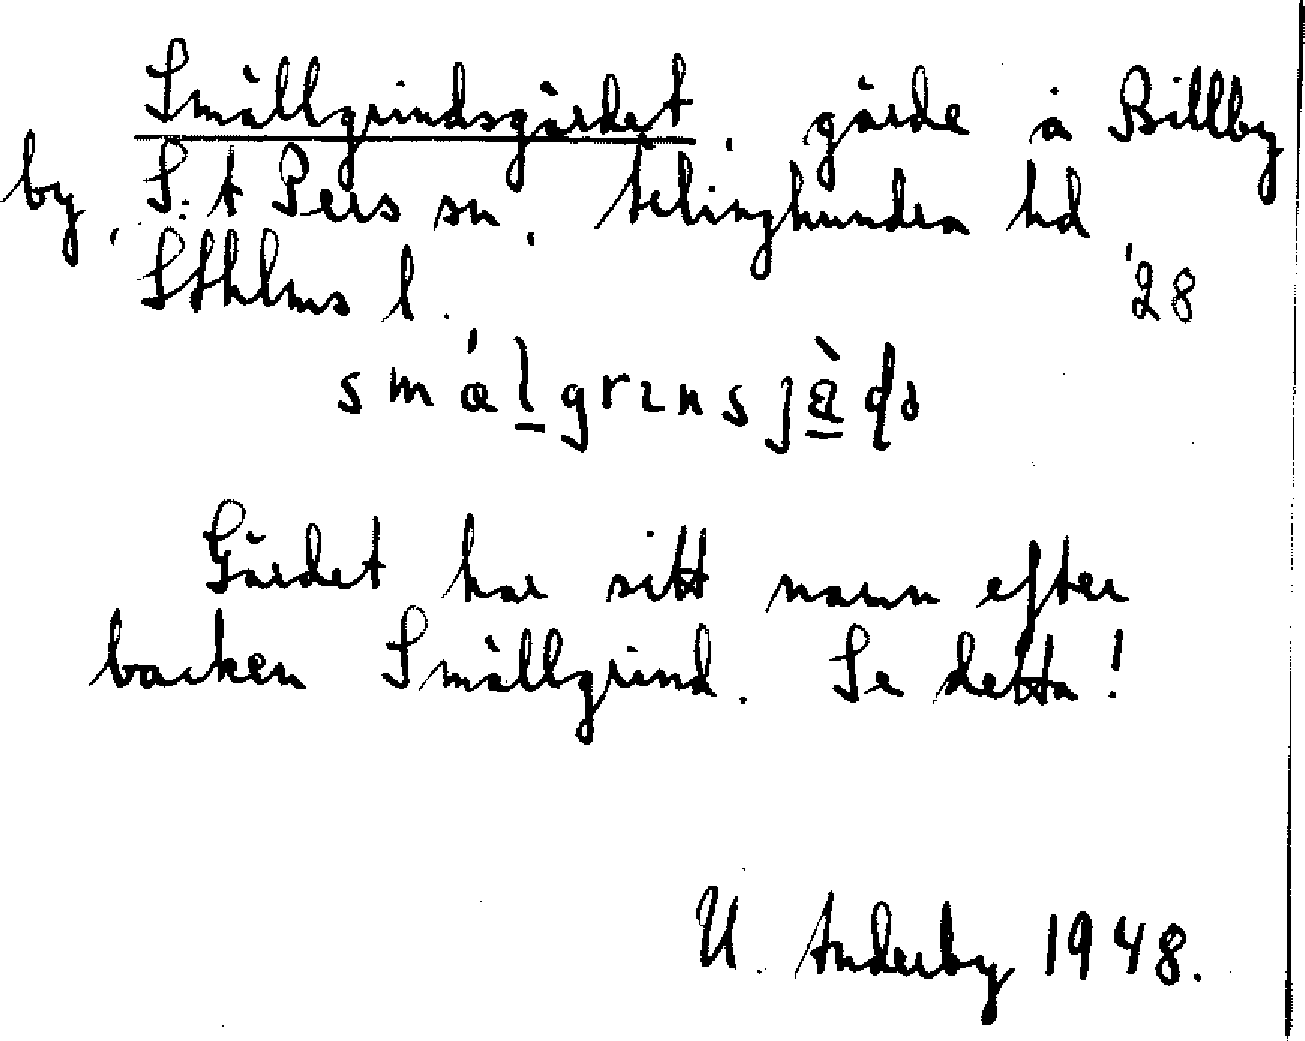 Smällgrindsgärdet, gärde å Billby
by, S:t Pers sn, Ærlinghundra hd
Sthlms l. '28
smálgrɪnsjädə
Gärdet har sitt namn efter
backen Smällgrind. Se detta!
U. Anderby 1948.